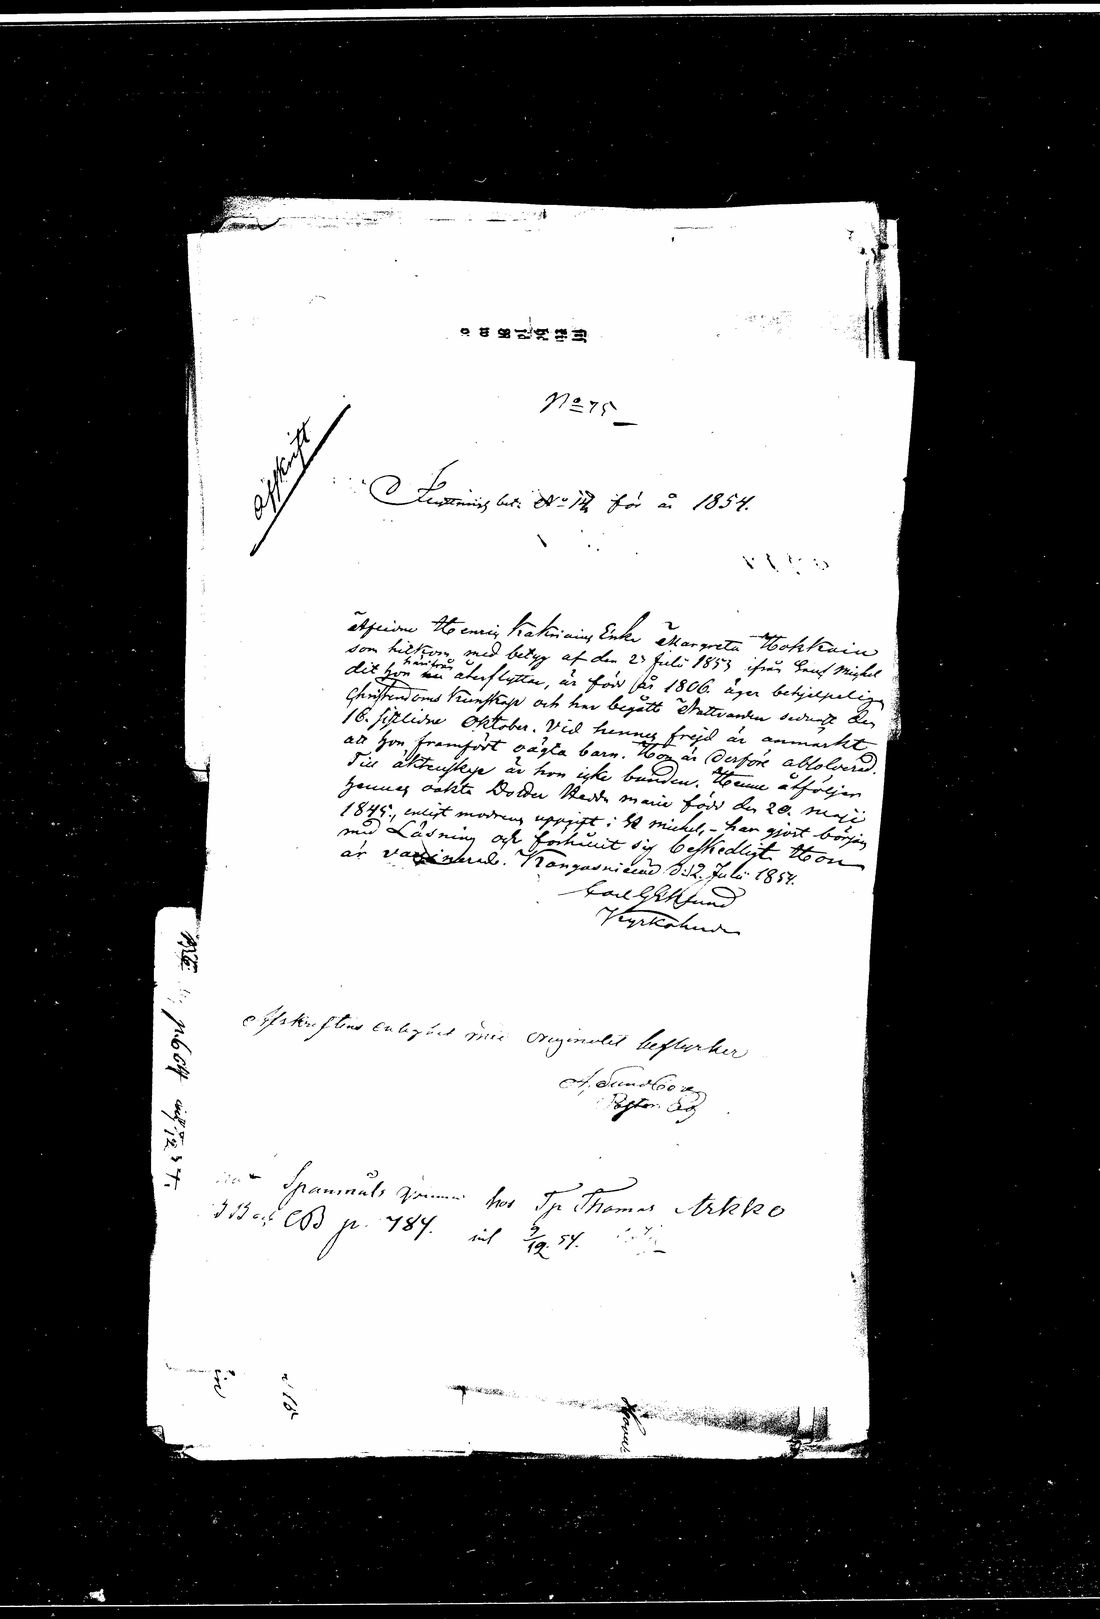 No 75
Afskrift
Flyttnings bet: No 14 för år 1854.
Afledne Henrik Enka Margreta Hokkain
som hitkom med betyg af den 2 Juli 1853 ifrån Sanct Michel
dit hon nu härifrån återflyttar, är född år 1806. äger behjelpelig
Christendoms Kunskap och har begått Nattvarden senast den
16. sistledne Oktober. Vid hennes frejd är anmärkt
att hon framfödt oägta barn. Hon är derföre absolverad.
Till äktenskap är hon icke bunden. Henne åtföljer
hennes oäkta Dotter Hedda Maria född den 20. maji
1845, enligt modrens uppgift i St Michel, - har gjort början
med Läsning och förhållit sig beskedligt. Hon
är vaccinerad. Kangasniemi d: 2 Juli 1854.
Carl G Eklund
Kyrkoherde
Afskriftens enlighet med originalet bestyrker
A. Sundberg
Pastor Adj
Spanmåls hos Tp Thomas Arkko
CB p. 784. inl 9/12. 54.